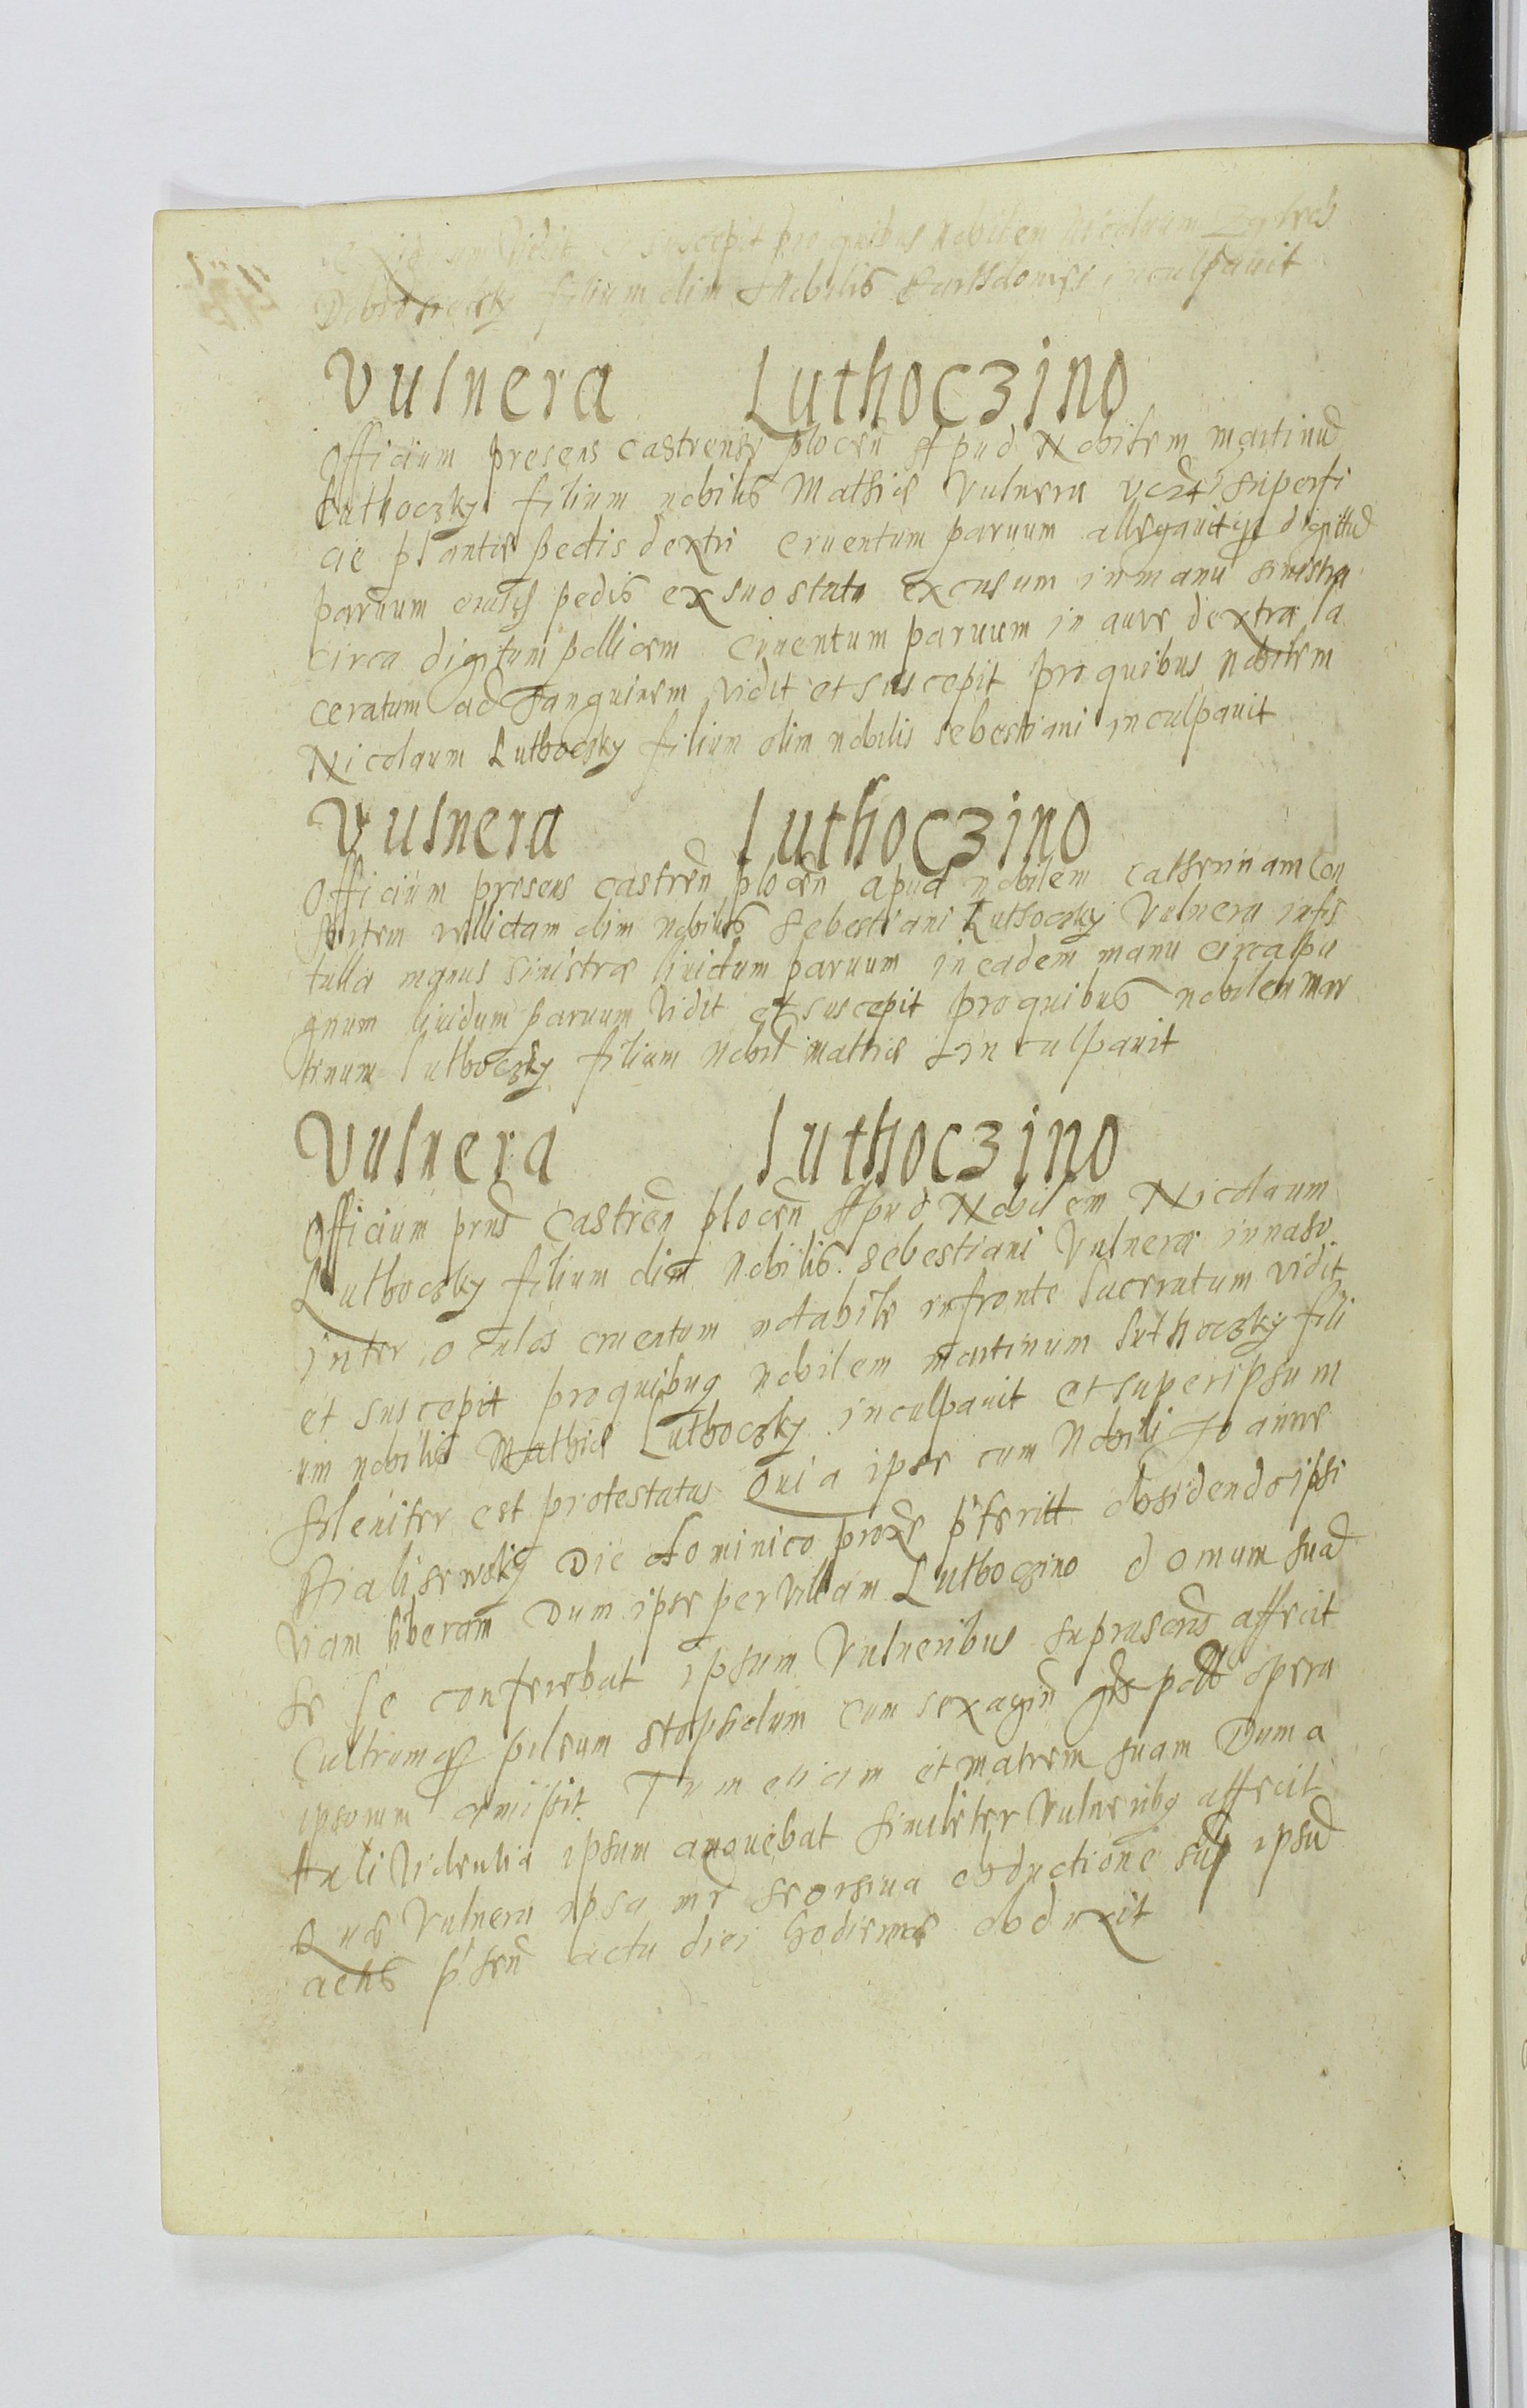 vidit suscepit pro quibus Nobilem Nicolaum
filium olim Nobilis inculpauit
Vulnera Luthoczino
Officium presens castrense plocen Apud Nobilem martinu
Luthoczky filium nobilis Mathie Vulnera superfi
cie plante pedis dextri cruentum paruum allegauitq digittu
paruum pedis ex suo statu excusum in manu sinistra
circa digitum pollicem cruentum paruum in aure dextra la
ceratum ad sanguinem vidit et suscepit pro quibus nobilem
Nicolaum Luthoczky filium olim nobilis sebestiani inculpauit
Vulnera luthoczino
Officium presens castren plocen apud nobilem Catherinam Con
sortem relictam olim nobilis sebestiani Luthoczky Vulnera in fis
tulla manus sinistræ liuidum paruum in eadem manu circa pu
gnum liuidum paruum vidit et suscepit pro quibus nobilem mar
tinum luthoczky filium nobil mathie inculpauit
Vulnera luthoczino
Officium prns Castren plocen Apud Nobilem Nicolaum
Luthoczky filium olim nobilis sebestiani Vulnera in naso
inter oculos cruentum notabile in fronte laceratum vidit
et suscepit pro quibus nobilem martinum luthoczky fili
um nobilis Mathie Luthoczky inculpauit et super ipsum
soleniter est protestatus Quia ipse cum Nobili Joanne
Bialiszewsky Die dominico proxe pterit obsidendo ipsi
viam liberam Dum ipse per villam Luthoczino domum sua
se se conferebat ipsum Vulneribus suprascris affecit
Cultrumq pileum cum sexagin grs opera
ipsorum amisit Tum etiam et matrem suam Dum a
tali violentia ipsum amouebat similiter vulneribq affecit
Que Vulnera ipsa mr seorsiua obductione sup ipsu
actis actu diei hodierne obduxit